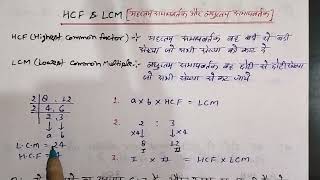 HCF & LCM [महत्तम समापवर्तक और लघुत्तम समापवर्तक]
HCF (Highest common factor) महत्तम समापवर्तक वह बड़ी से बड़ी
संख्या जो सभी संख्या को काट दे
LCM (Lowest common Multiple) लघुत्तम समापवर्तक वह छोटी से छोटी संख्या
जो सभी संख्या से कट जाये
2 | 8 , 12
2 | 4, 6
2, 3
↓ ↓
a b
L.C.M = 24
H.C.F =
1. a x b x HCF = LCM
2. 8 12
x4↓ x4↓
I II
3. I x II = HCF x LCM